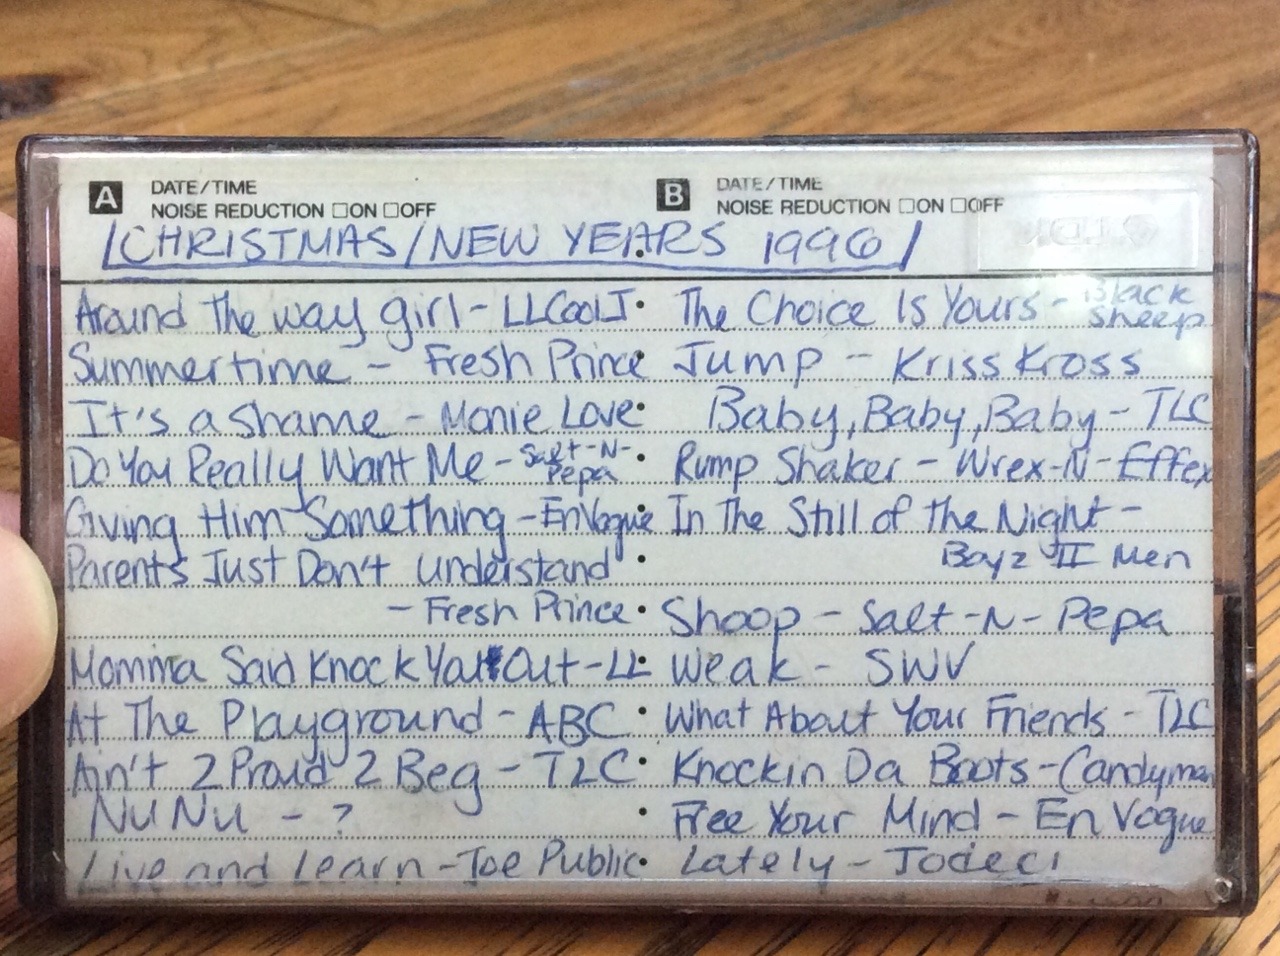 A DATE/TIME
NOISE REDUCTION □ON □OFF
B DATE/TIME
NOISE REDUCTION □ON □OFF
/CHRISTMAS/NEW YEARS 1996/
Around The way girl - LL Cool J
Summertime - Fresh Prince
It's a shame - Monie Love
Do You Really Want Me - Salt-N-
Pepa
Giving Him Something - En Vogue
Parents Just Don't understand
- Fresh Prince
Momma Said Knock You Out - LL
At The Playground - ABC
Ain't 2 Proud 2 Beg - TLC
Nu Nu - ?
Live and Learn - Joe Public
The Choice Is Yours - Black
Sheep
Jump - Kriss Kross
Baby, Baby, Baby - TLC
Rump Shaker - Wrex-N-Effex
In The Still of the Night -
Boyz II Men
Shoop - Salt-N-Pepa
Weak - SWV
What About Your Friends - TLC
Knockin Da Boots - Candyman
Free Your Mind - En Vogue
Lately - Jodeci